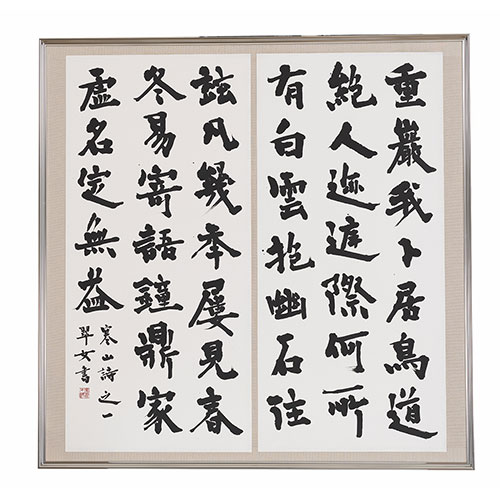 重巖我卜居鳥道
絶人迹庭際何所
有白雲抱幽石住
茲凡幾年屢見春
冬易寄語鐘鼎家
虛名定無益
寒山詩之一
翠女書